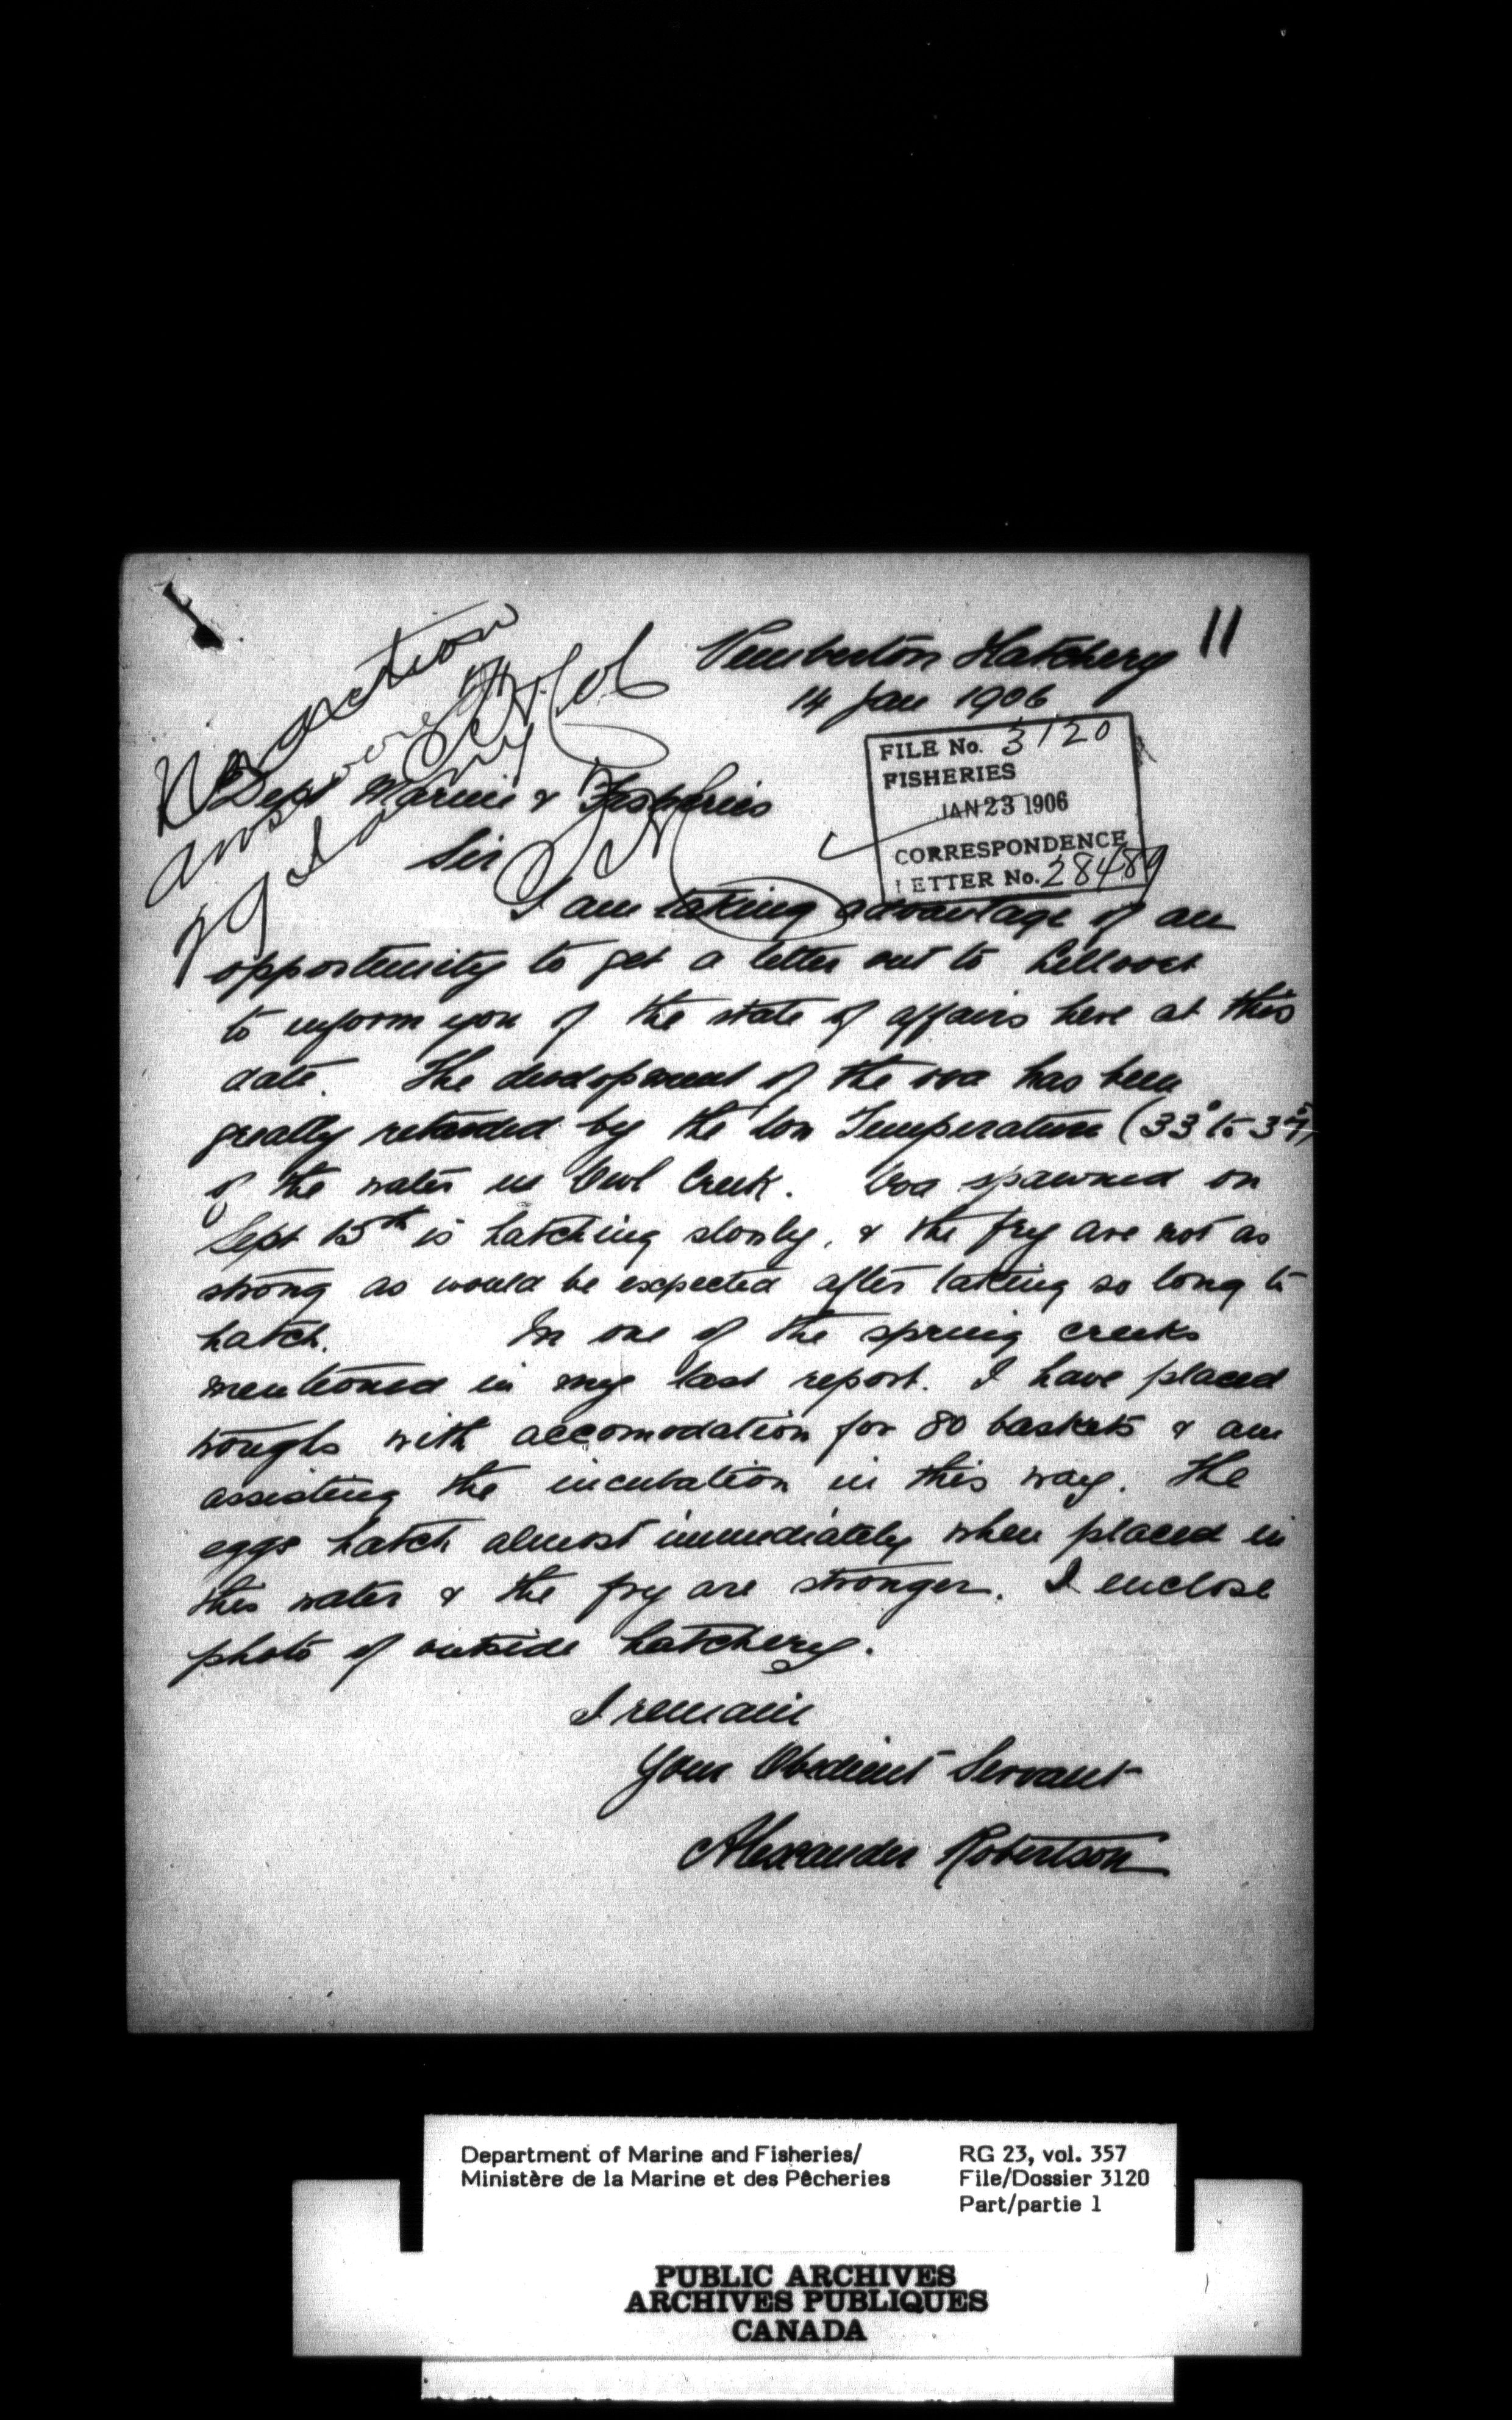 11
Pemberton Hatchery
14 Jan 1906
No action
FILE No. 3120
FISHERIES
JAN 23 1906
CORRESPONDENCE
LETTER No. 28489
Dept Marine & Fisheries
Sir
I am taking advantage of an
opportunity to get a letter out to Lillooet
to inform you of the state of affairs here at this
date. The development of the ova has been
greatly retarded by the low Temperature (33° to 34°)
of the water in Owl Creek. Ova spawned on
Sept 15th is hatching slowly, & the fry are not as
strong as would be expected after taking so long to
hatch. In one of the spring creeks
mentioned in my last report. I have placed
troughs with accomodation for 80 baskets & am
assisting the incubation in this way. The
eggs hatch almost immediately when placed in
this water & the fry are stronger. I enclose
photo of outside hatchery.
I remain
Your Obedient Servant
Alexander Robertson
Department of Marine and Fisheries/
Ministère de la Marine et des Pêcheries
RG 23, vol. 357
File/Dossier 3120
Part/partie 1
PUBLIC ARCHIVES
ARCHIVES PUBLIQUES
CANADA